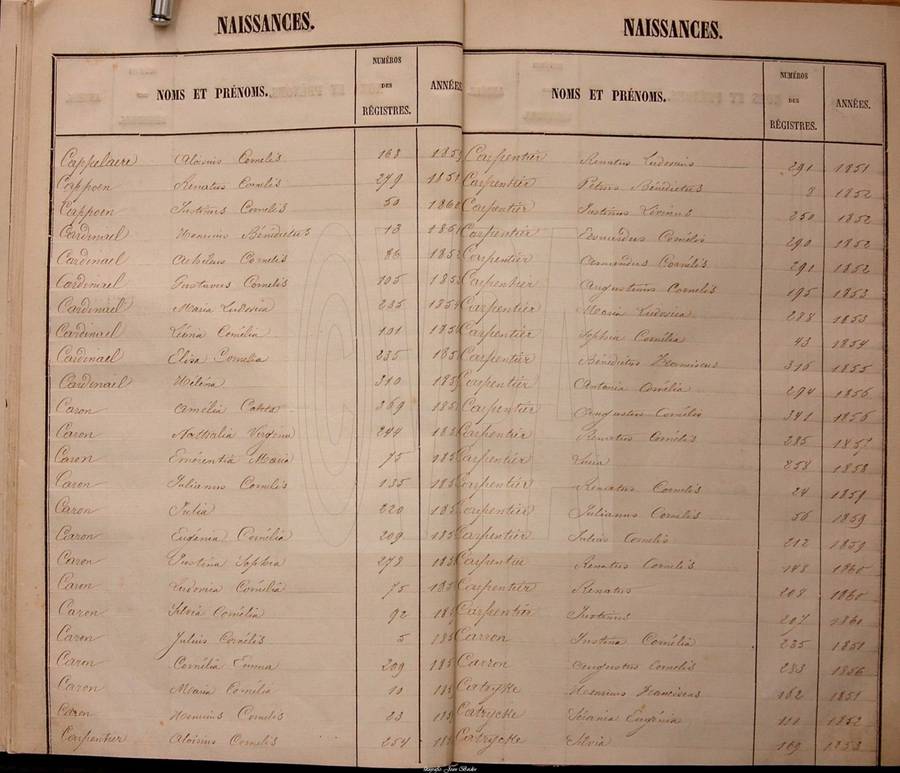 NAISSANCES.
NOMS ET PRÉNOMS. NUMÉROS DES RÉGISTRES. ANNÉES
Cappelaere Aloisius Cornelis 168
Cappoen Renatus Cornelis 279
Cappoen Justinus Cornelis 50
Cardinael Henricus Bénédictus 13
Cardinael Achileus Cornelis 86
Cardinael Gustavus Cornelis 105
Cardinael Maria Ludovica 235
Cardinael Léonia Cornélia 101
Cardinael Elisa Cornelia 235
Cardinael Héléna 310
Caron Amélia 369
Caron Nathalia 244
Caron Emérentia Maria 75
Caron Julianus Cornelis 135
Caron Julia 220
Caron Eugénia Cornélia 209
Caron Justina Sophia 278
Caron Ludovica Cornélia 75
Caron Silvia Cornélia 92
Caron Julius Cornélis 5
Caron Cornélia Emma 209
Caron Maria Cornélia 10
Caron Henricus Cornelis 23
Carpentier Aloisius Cornelis 254
NAISSANCES.
NOMS ET PRÉNOMS. NUMÉROS DES RÉGISTRES. ANNÉES.
Carpentier Renatus Ludovicus 291 1851
Carpentier Petrus Bénédictus 2 1852
Carpentier Justinus 250 1852
Carpentier Edouardus Cornélis 290 1852
Carpentier Amandus Cornélis 291 1852
Carpentier Augustinus Cornelis 195 1853
Carpentier Maria Ludovica 288 1853
Carpentier Sophia Cornélia 43 1854
Carpentier Bénédictus Franciscus 316 1855
Carpentier Antonia Amélia 294 1856
Carpentier Augustus Cornélis 341 1856
Carpentier Renatus Cornélis 285 1857
Carpentier 258 1858
Carpentier Renatus Cornelis 24 1859
Carpentier Julianus Cornelis 56 1859
Carpentier Julius Cornelis 212 1859
Carpentier Renatus Cornelis 148 1860
Carpentier Renatus 208 1860
Carpentier Justinus 207 1861
Carron Justina Cornélia 235 1851
Carron Augustus Cornelis 283 1856
Catrycke Honorius Franciscus 162 1851
Catrycke Eugénia 111 1852
Catrycke Silvia 169 1853